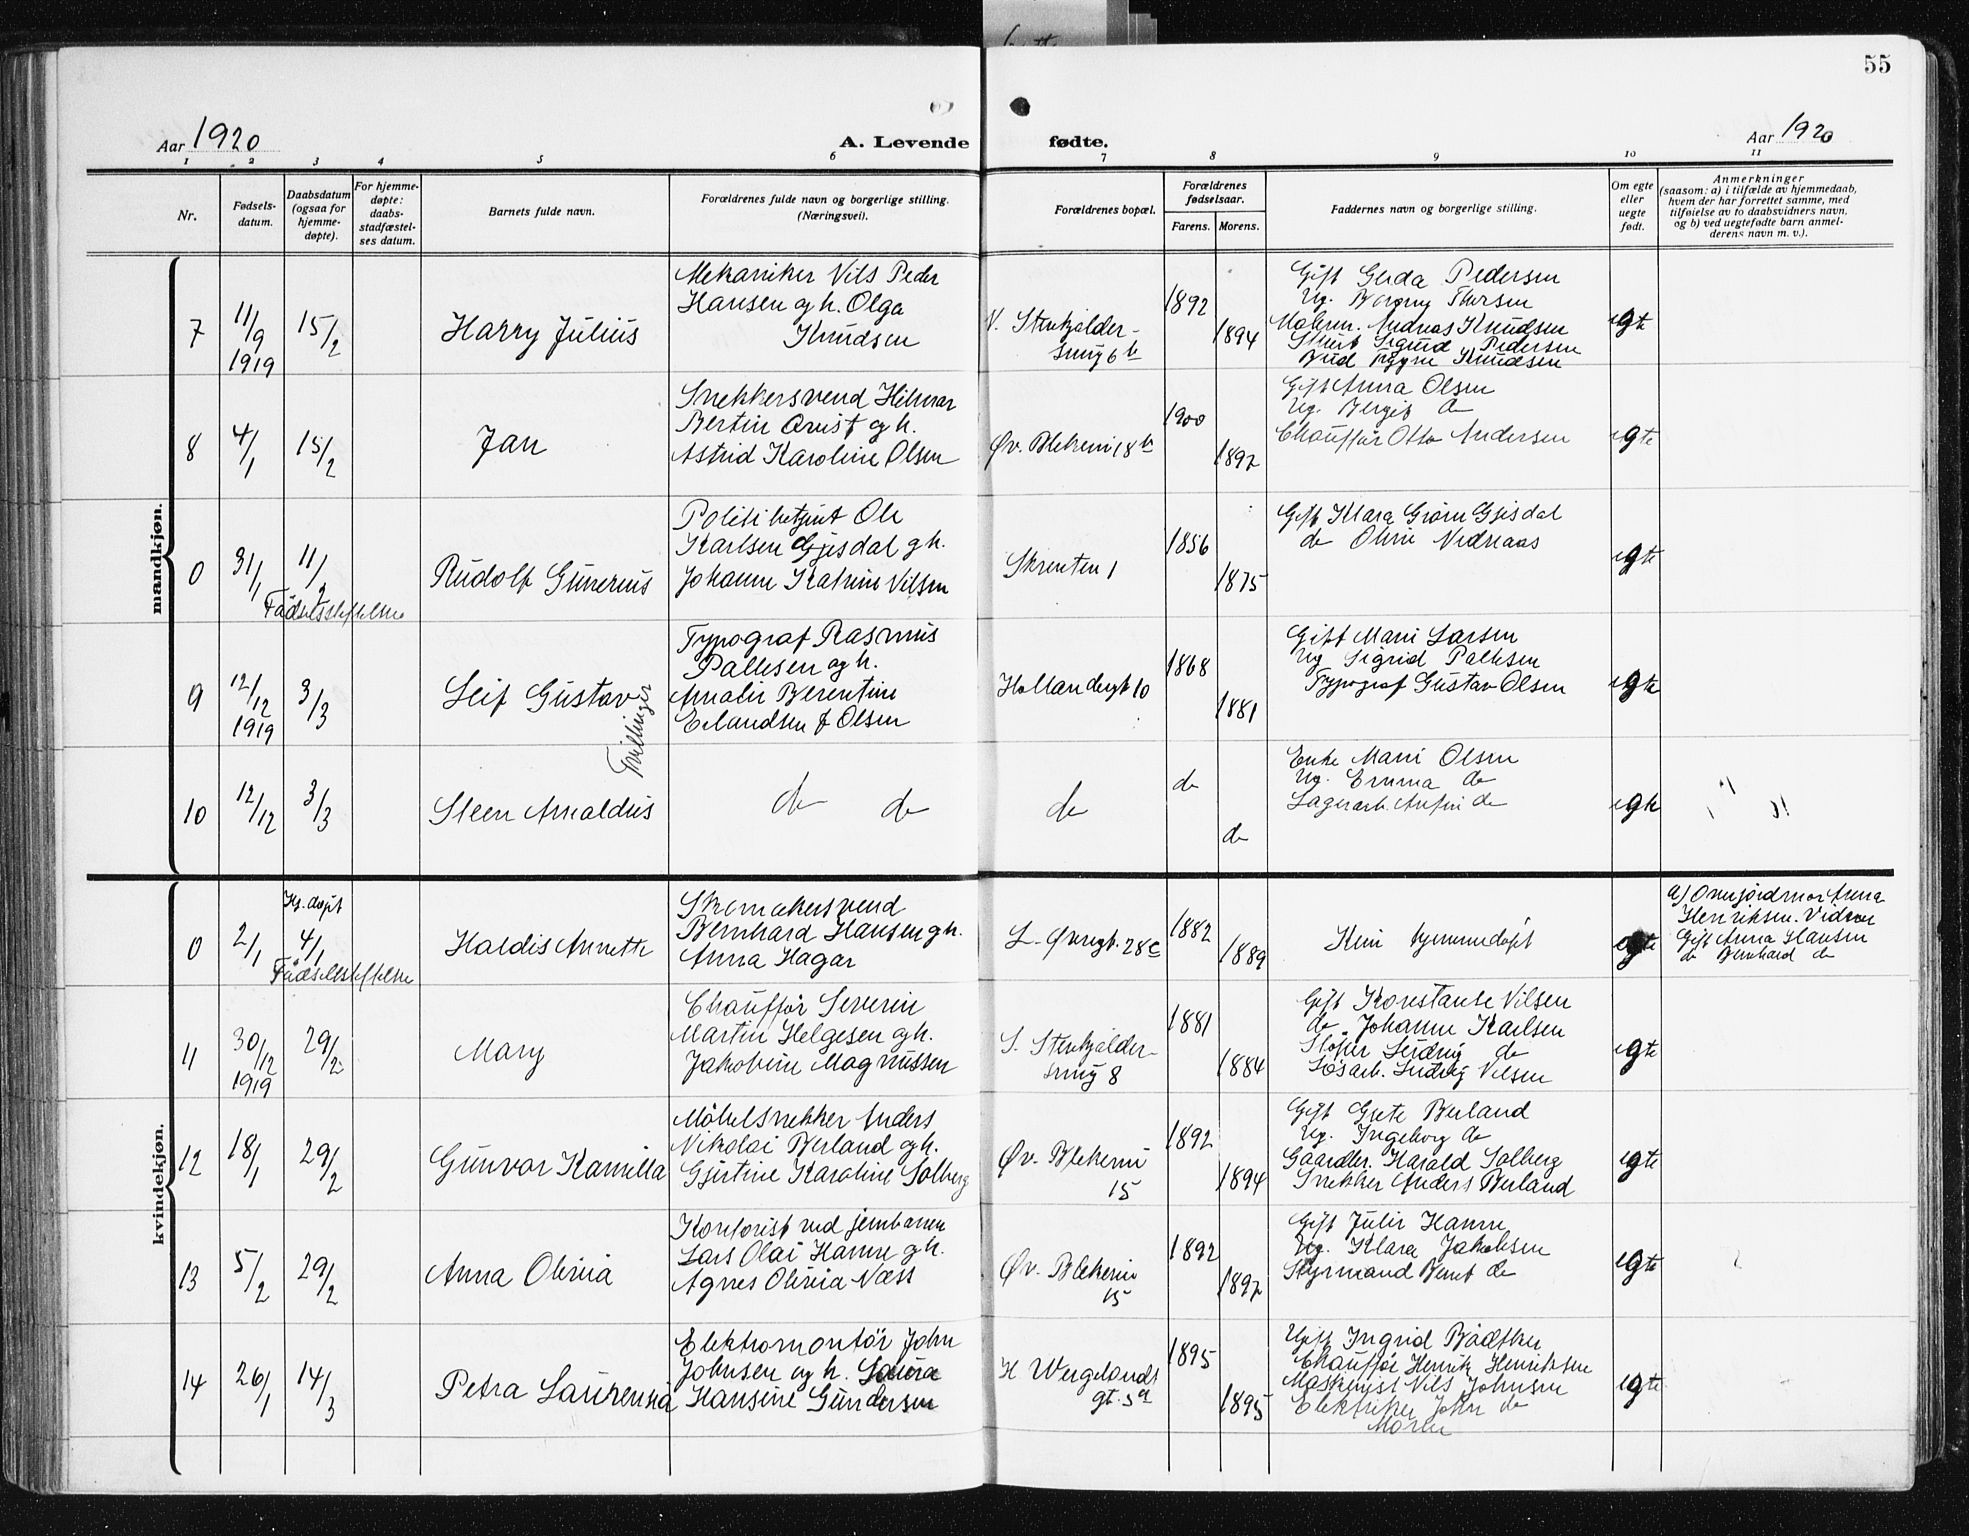 55
Aar 1920
A. Levende fødte.
Aar 1920
1 2 3 4 5 6 7 8 9 10 11
Nr.
Fødsels-
datum.
Daabsdatum
(ogsaa for
hjemme-
døpte).
For hjemme-
døpte:
daabs-
stadfæstel-
ses datum.
Barnets fulde navn.
Forældrenes fulde navn og borgerlige stilling.
(Næringsvei).
Forældrenes bopæl.
Forældrenes
fødselsaar.
Farens. Morens.
Faddernes navn og borgerlige stilling.
Om egte
eller
uegte
født.
Anmerkninger
(saasom: a) i tilfælde av hjemmedaab,
hvem der har forrettet samme, med
tilføielse av to daabsvidners navn,
og b) ved uegtefødte barn anmel-
derens navn m. v.).
mandkjøn.
7
11/9
1919
15/2
Harry Julius
Mekaniker Nils Peder
Hansen og h. Olga
Knudsen
V. Stenkjalder-
smug 6 b
1892
1894
Gift Gerda Pedersen
Ug. Borgny Thorsen
Andreas Knudsen
Sigurd Pedersen
Bud Trygve Knudsen
egte
8
4/1
15/2
Jan
Snekkersvend Hilmar
Bertin Qvist og h.
Astrid Karoline Olsen
Øv. Blekevei 18 b
1900
1892
Gift Anna Olsen
Ug. Bergit do
Chauffør Otto Andersen
egte
0
31/1
11/2
Fødselsstiftelsen
Rudolf Gunerius
Politibetjent Ole
Karlsen Gjesdal og h.
Johanne Katrine Nilsen
Skrenten 1
1856
1875
Gift Klara Grørn Gjesdal
do Oline Nednaas
egte
9
12/12
1919
3/3
Leif Gustav
Tvillinger
Typograf Rasmus
Pallesen og h.
Amalie Berentine
Erlandsen f Olsen
Hollendergt 10
1868
1881
Gift Marie Larsen
Ug Sigrid Pallesen
Typograf Gustav Olsen
egte
10
12/12
3/3
Steen Arnaldus
do do
do
do
do
Enke Marie Olsen
Ug. Emma do
Lagerarb. Anfin do
egte
kvindekjøn.
0
2/1
Hj. døpt
4/1
Fødselsstiftelsen
Haldis Annette
Skomakersvend
Bernhard Hansen og h.
Anna Hagar
L. Øvregt. 28 c
1882
1889
Kun hjemmedøpt
egte
a) Overjordmor Anna
Henriksen. Vidner
Gift Anna Hansen
do Bernhard do
11
30/12
1919
29/2
Mary
Chauffør Severin
Martin Helgesen og h.
Jakobine Magnussen
S. Stenkjalder-
smug 8
1881
1884
Gift Konstanse Nilsen
do Johanne Karlsen
Sløier Ludvig do
Løsarb. Ludvig Nilsen
egte
12
18/1
29/2
Gunvor Kamilla
Møbelsnekker Anders
Nikolai Berland og h.
Gjertine Karoline Solberg
Øv. Blekevei
15
1892
1894
Gift Grete Berland
Ug. Ingeborg do
Gaardbr. Harald Solberg
Snekker Anders Berland
egte
13
5/2
29/2
Anna Olivia
Kontorist ved jernbanen
Lars Olai Hamre og h.
Agnes Olivia Næss
Øv. Blekevei
15
1892
1892
Gift Julie Hamre
Ug. Klara Jakobsen
Styrmand Bernt do
egte
14
26/1
14/3
Petra Laurensia
Elektromontør John
Johnsen og h. Laura
Hansine Gundersen
H Wergelands
gt. 5 a
1895
1895
Gift Ingrid Bådtker
Chauffør Henrik Henriksen
Maskinist Nils Johnsen
Elektriker John do
Moren
egte